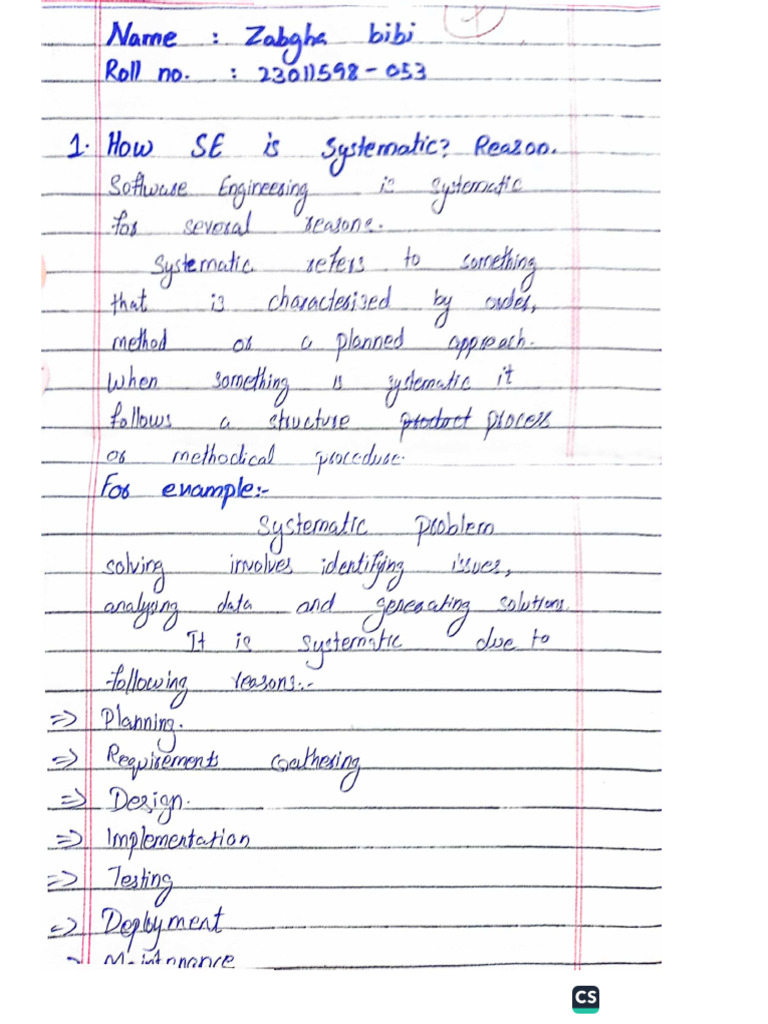 Name : Zabgha bibi
Roll no. : 23011598-053
1. How SE is Systematic? Reason.
Software Engineering is systematic
for several reasons.
Systematic refers to something
that is characterised by order,
method or a planned approach.
When something is systematic it
follows a structure product process
or methodical procedure.
For example:-
Systematic problem
solving involves identifying issues,
analysing data and generating solutions.
It is systematic due to
following reasons:-
=> Planning.
=> Requirements Gathering
=> Design.
=> Implementation
=> Testing
=> Deployment
Maintenance
CS